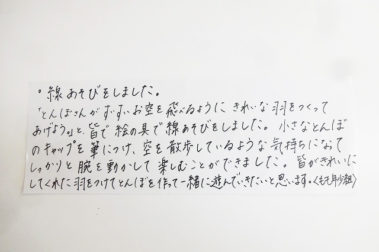 。線あそびをしました。
「とんぼさんがずーいずーいお空を飛べるように きれいな羽をつくって
あげよう」と、皆で絵の具で線あそびをしました。小さなとんぼ
のキャップを筆につけ、空を散歩しているような気持ちになって
しっかりと腕を動かして楽しむことができました。皆がきれいに
してくれた羽をつけてとんぼを作って一緒に遊んでいきたいと思います。〈もも年少組〉